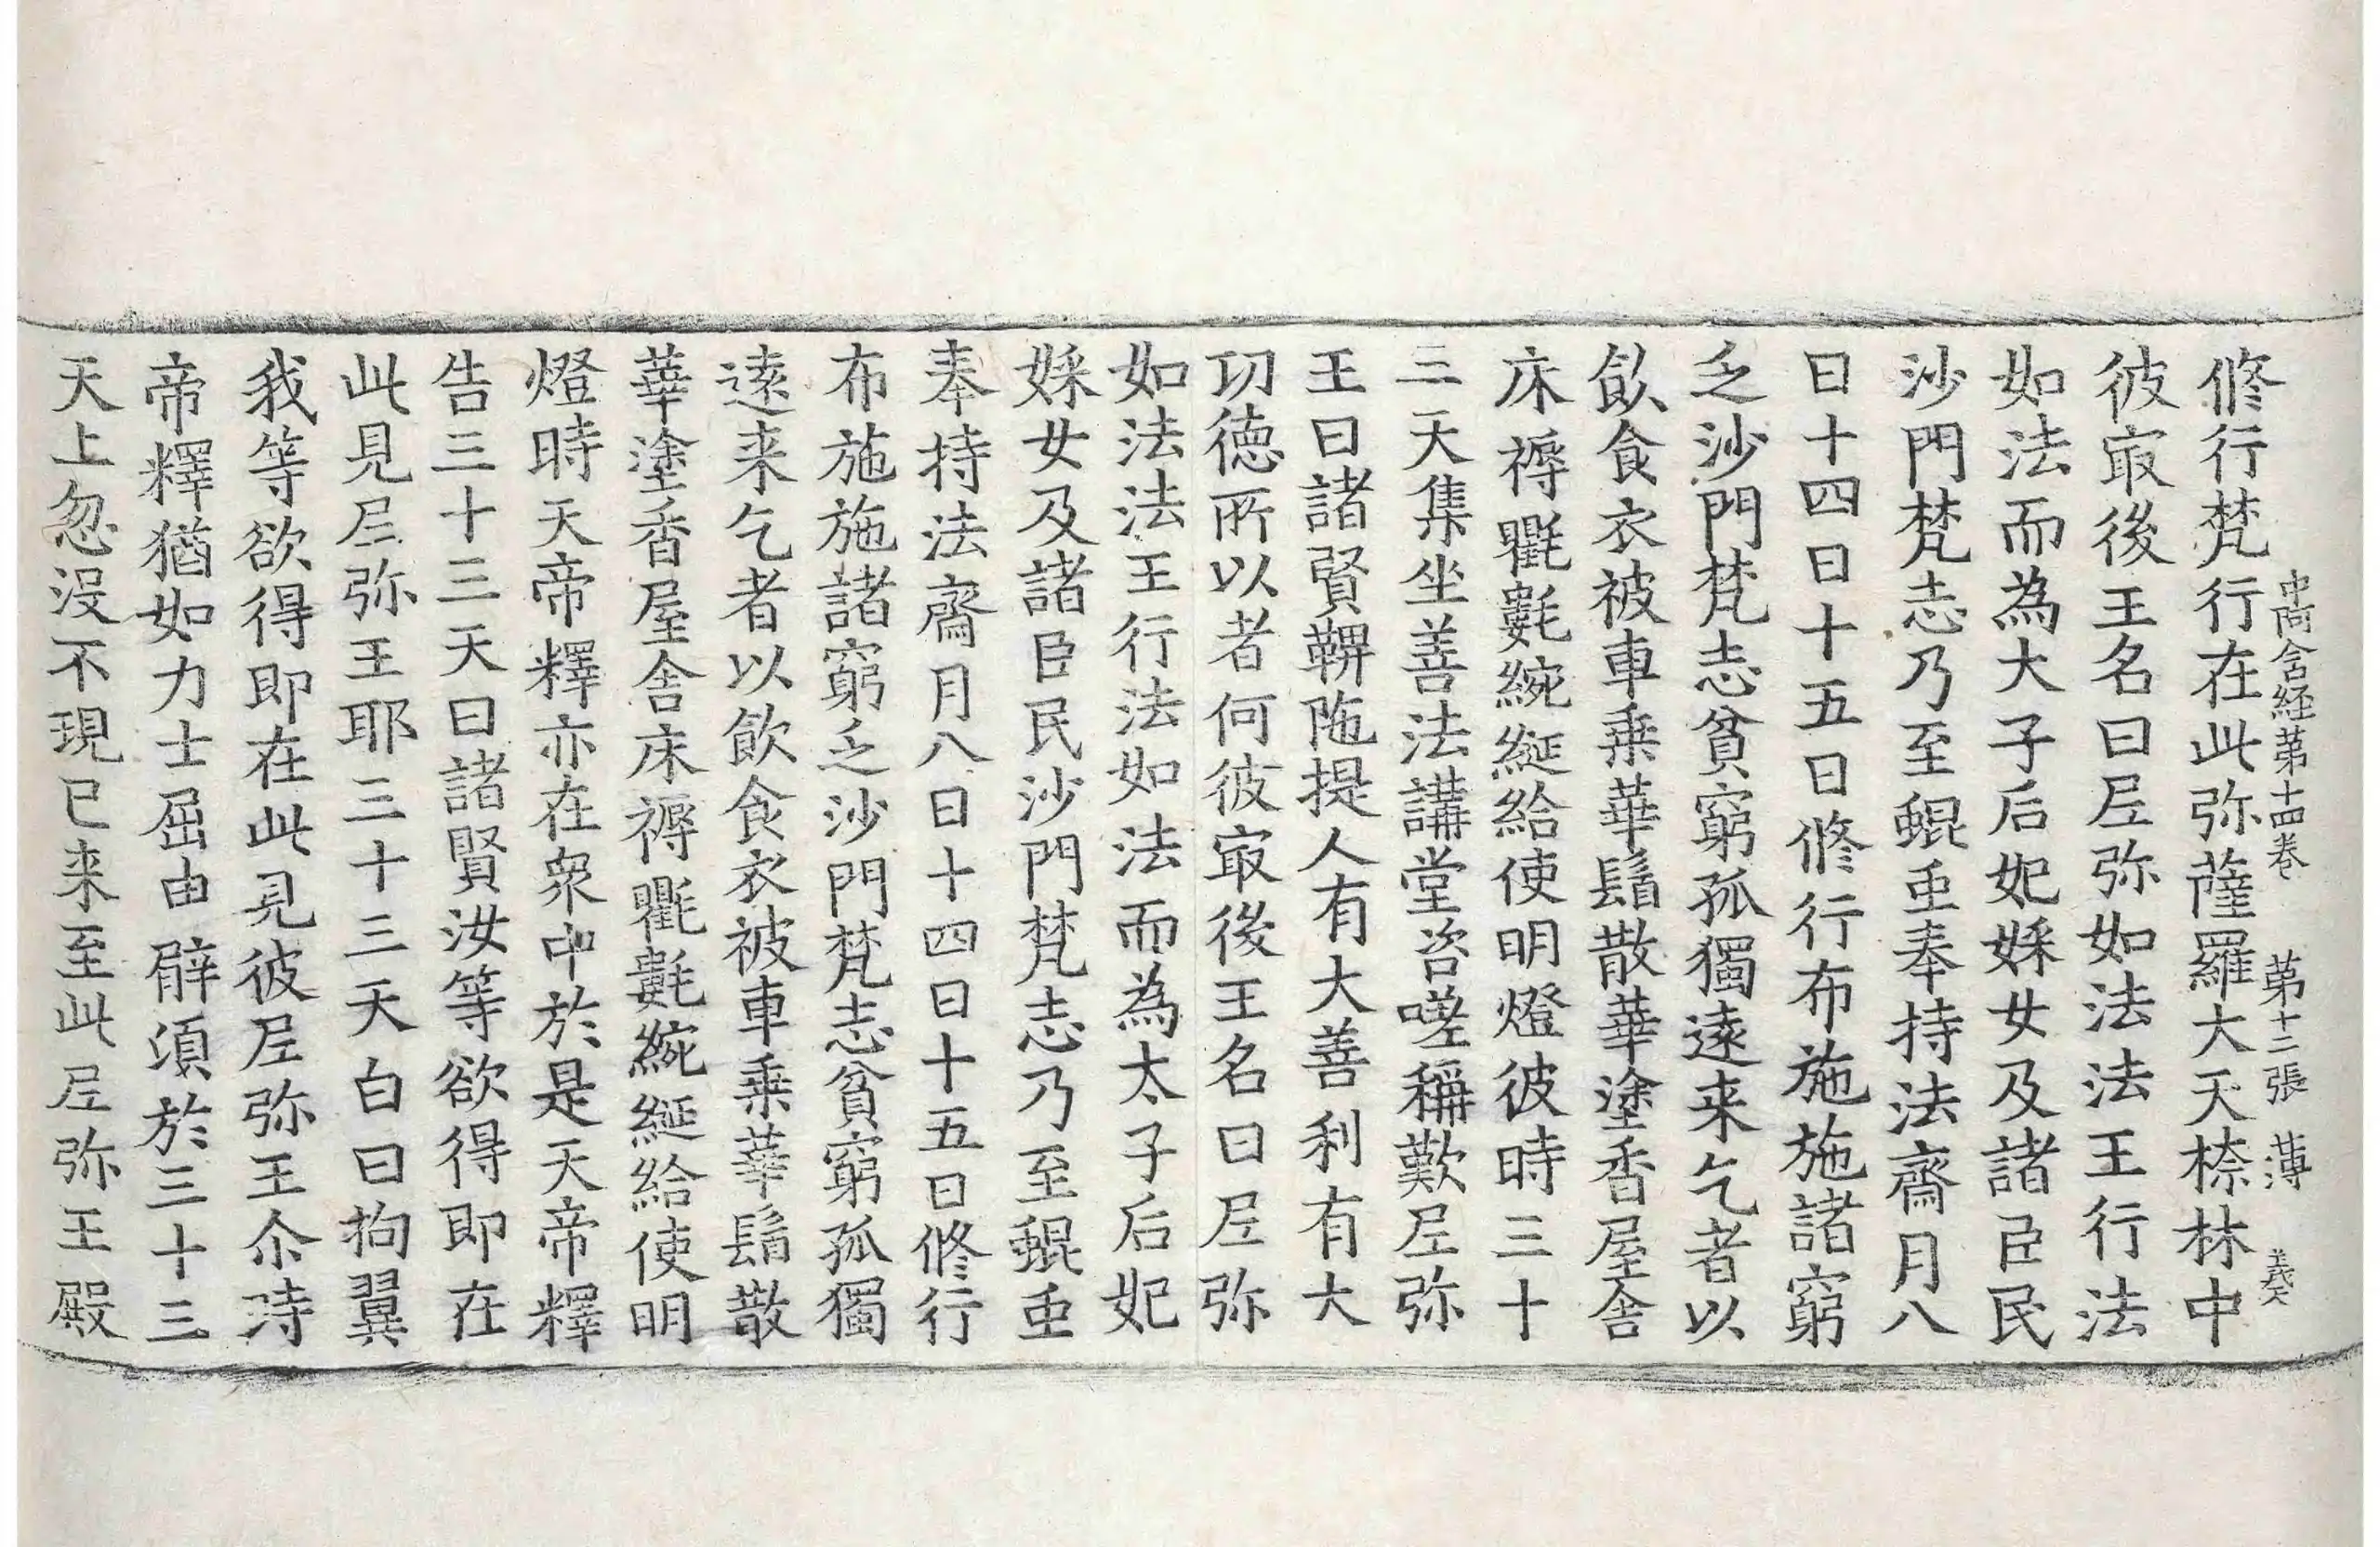 修行梵行在此弥薩羅大天㮈林中
中阿含経第十四卷 第十二張 薄
彼㝡後王名曰𡰱弥如法法王行法
如法而為大子后妃婇女及諸臣民
沙門梵志乃至蜫䖝奉持法齋月八
日十四日十五日修行布施施諸窮
乏沙門梵志貧窮孤獨遠来乞者以
飲食衣被車乗華鬘散華塗香屋舎
床褥氍氀綩綖給使明燈彼時三十
三天集坐善法講堂咨嗟稱歎𡰱弥
王曰諸賢鞞陁提人有大善利有大
功徳所以者何彼㝡後王名曰𡰱弥
如法法王行法如法而為太子后妃
婇女及諸臣民沙門梵志乃至蜫䖝
奉持法齋月八日十四日十五日修行
布施施諸窮乏沙門梵志貧窮孤獨
遠来乞者以飲食衣被車乗華鬘散
華塗香屋舎床褥氍氀綩綖給使明
燈時天帝釋亦在衆中於是天帝釋
告三十三天曰諸賢汝等欲得即在
此見𡰱弥王耶三十三天白曰拘翼
我等欲得即在此見彼𡰱弥王尒時
帝釋猶如力士屈申臂湏於三十三
天上忽没不現已来至此𡰱弥王殿